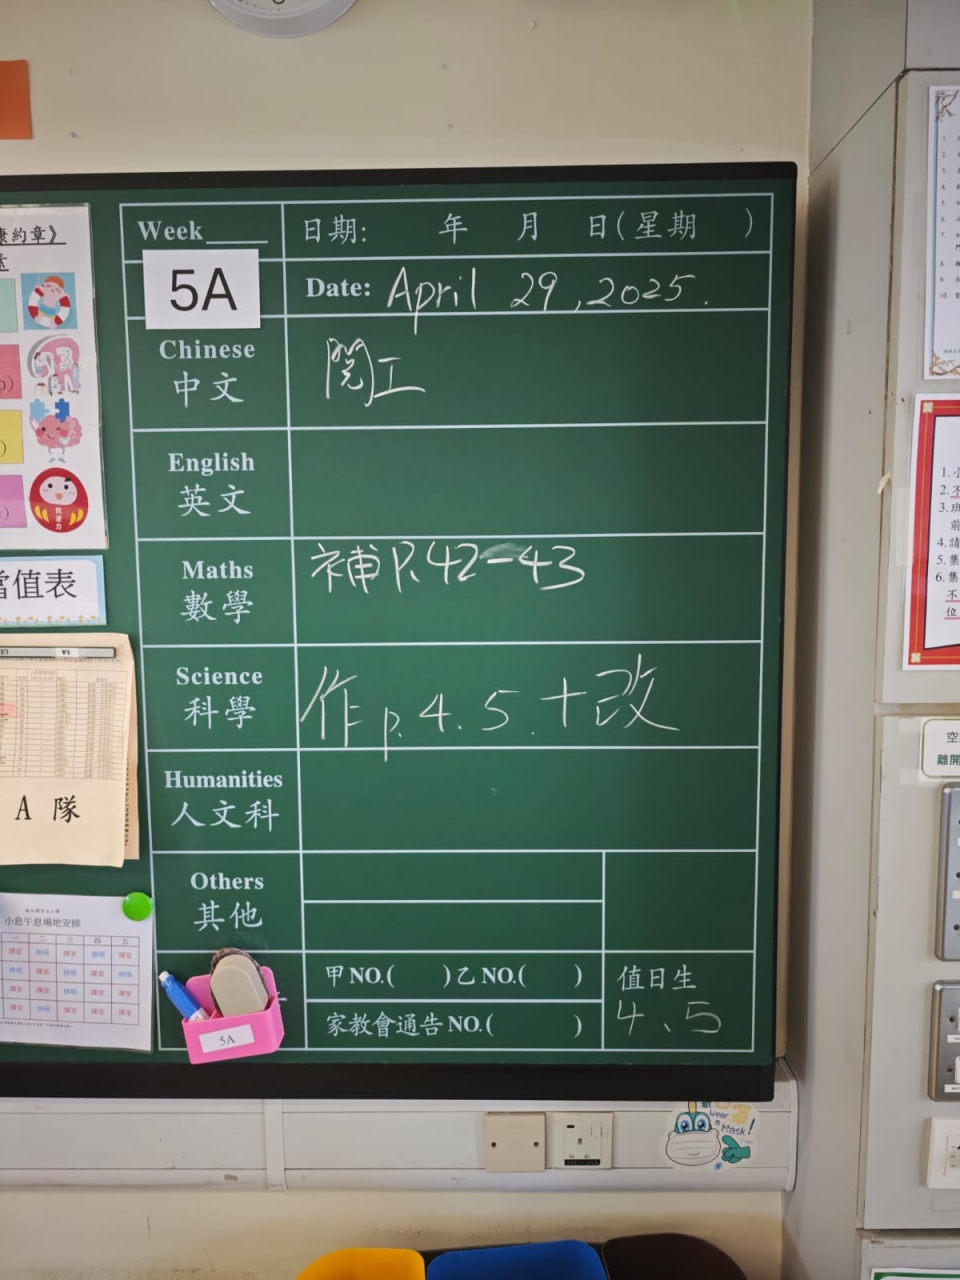 康約章》
Week____
日期:　年　月　日(星期　)
5A
Date: April 29, 2025.
Chinese
中文
閱工
English
英文
Maths
數學
補 P.42-43
Science
科學
作 p. 4、5. 十改
Humanities
人文科
Others
其他
甲 NO.(　)乙 NO.(　)
值日生
家教會通告 NO.(　)
4、5
5A
當值表
A 隊
小息午息場地安排
Wear
a
Mask!
空
離開